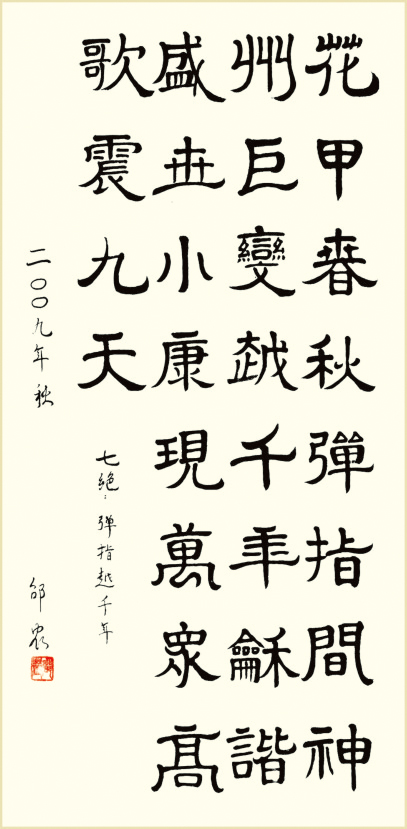 花甲春秋彈指間神
州巨變越千年龢諧
盛世小康現萬眾高
歌震九天
七絕：弹指越千年
二〇〇九年秋